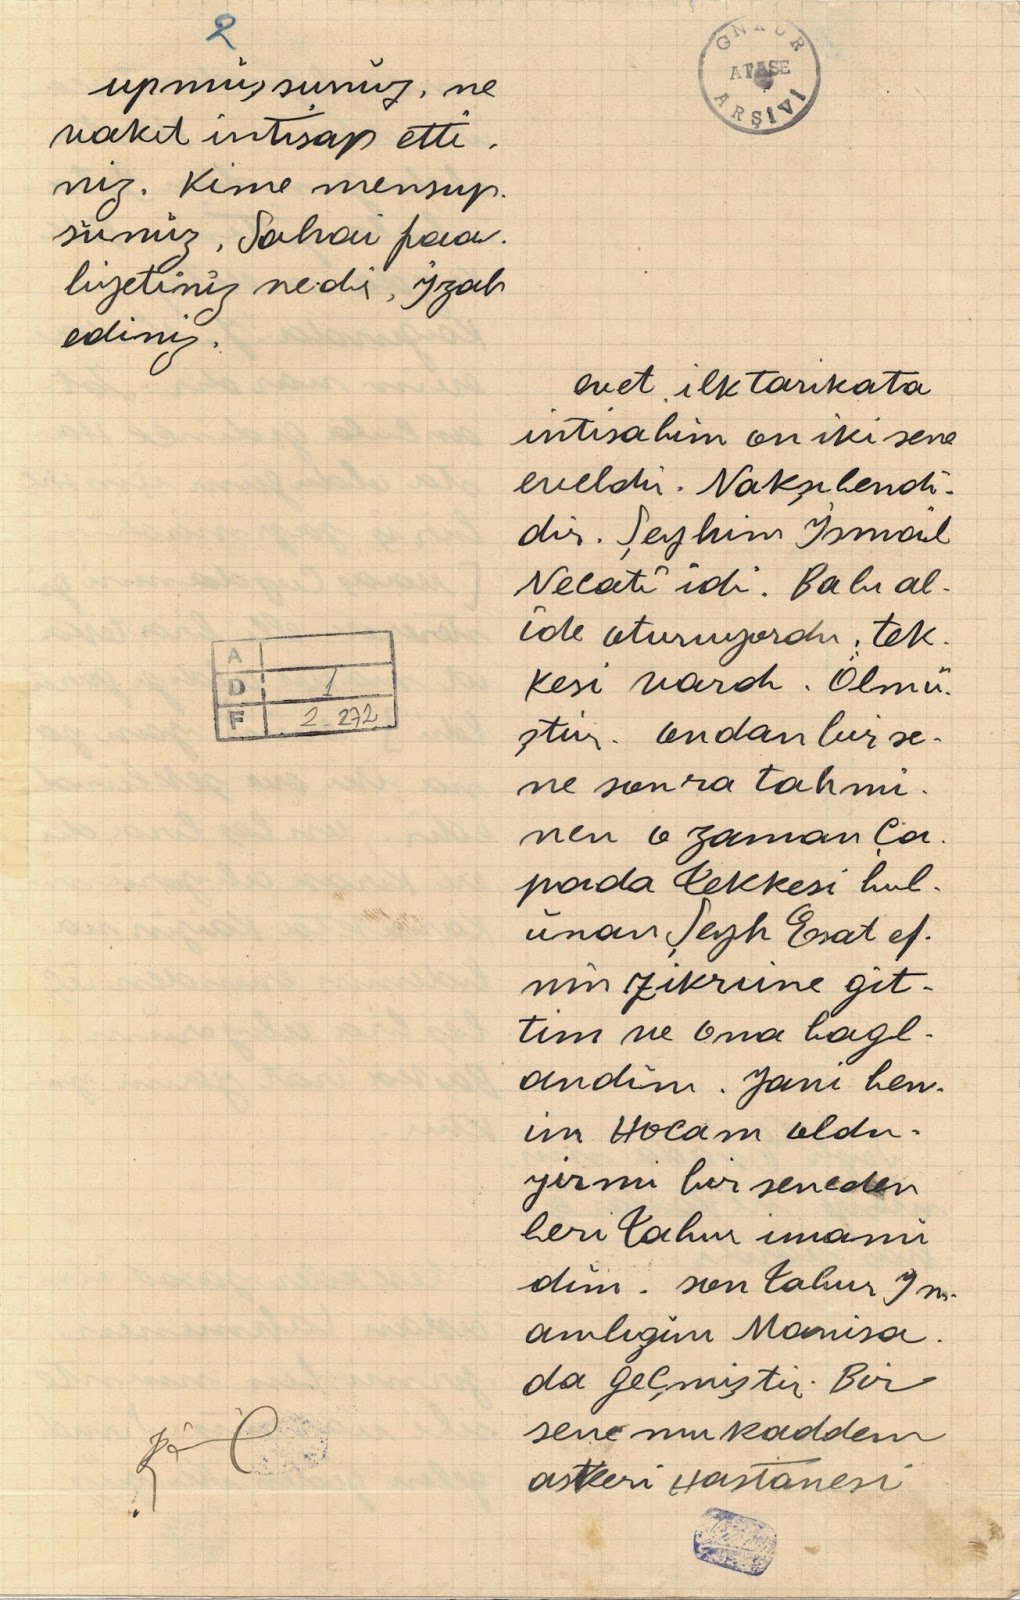 2
GNKUR
ATASE
ARŞİVİ
upmuşsunuz, ne
vakıt intisap etti.
niz. Kime mensup.
sunuz, Sabai faa.
liyetiniz nedir, İzah
ediniz.
evet, ilk tarikata
intisabım on iki sene
eveldir. Nakşibendi-
dir. Şeyhim İsmail
Necati idi. Babı al-
ide oturuyordu, tek-
kesi vardı. Ölmü.
ştür. ondan bir se-
ne sonra tahmi.
nen o zaman Ça.
pada tekkesi bul-
unan Şeyh Esat ef.
nin zikrine git-
tim ve ona bagl-
andım. Yani ben.
im Hocam oldu.
yirmi bir seneden
beri tabur imamı
dım. son tabur Im-
amlıgım Manisa.
da geçmiştir. Bir
sene mukaddem
askeri Hastanesi
A
D 1
F 2-272